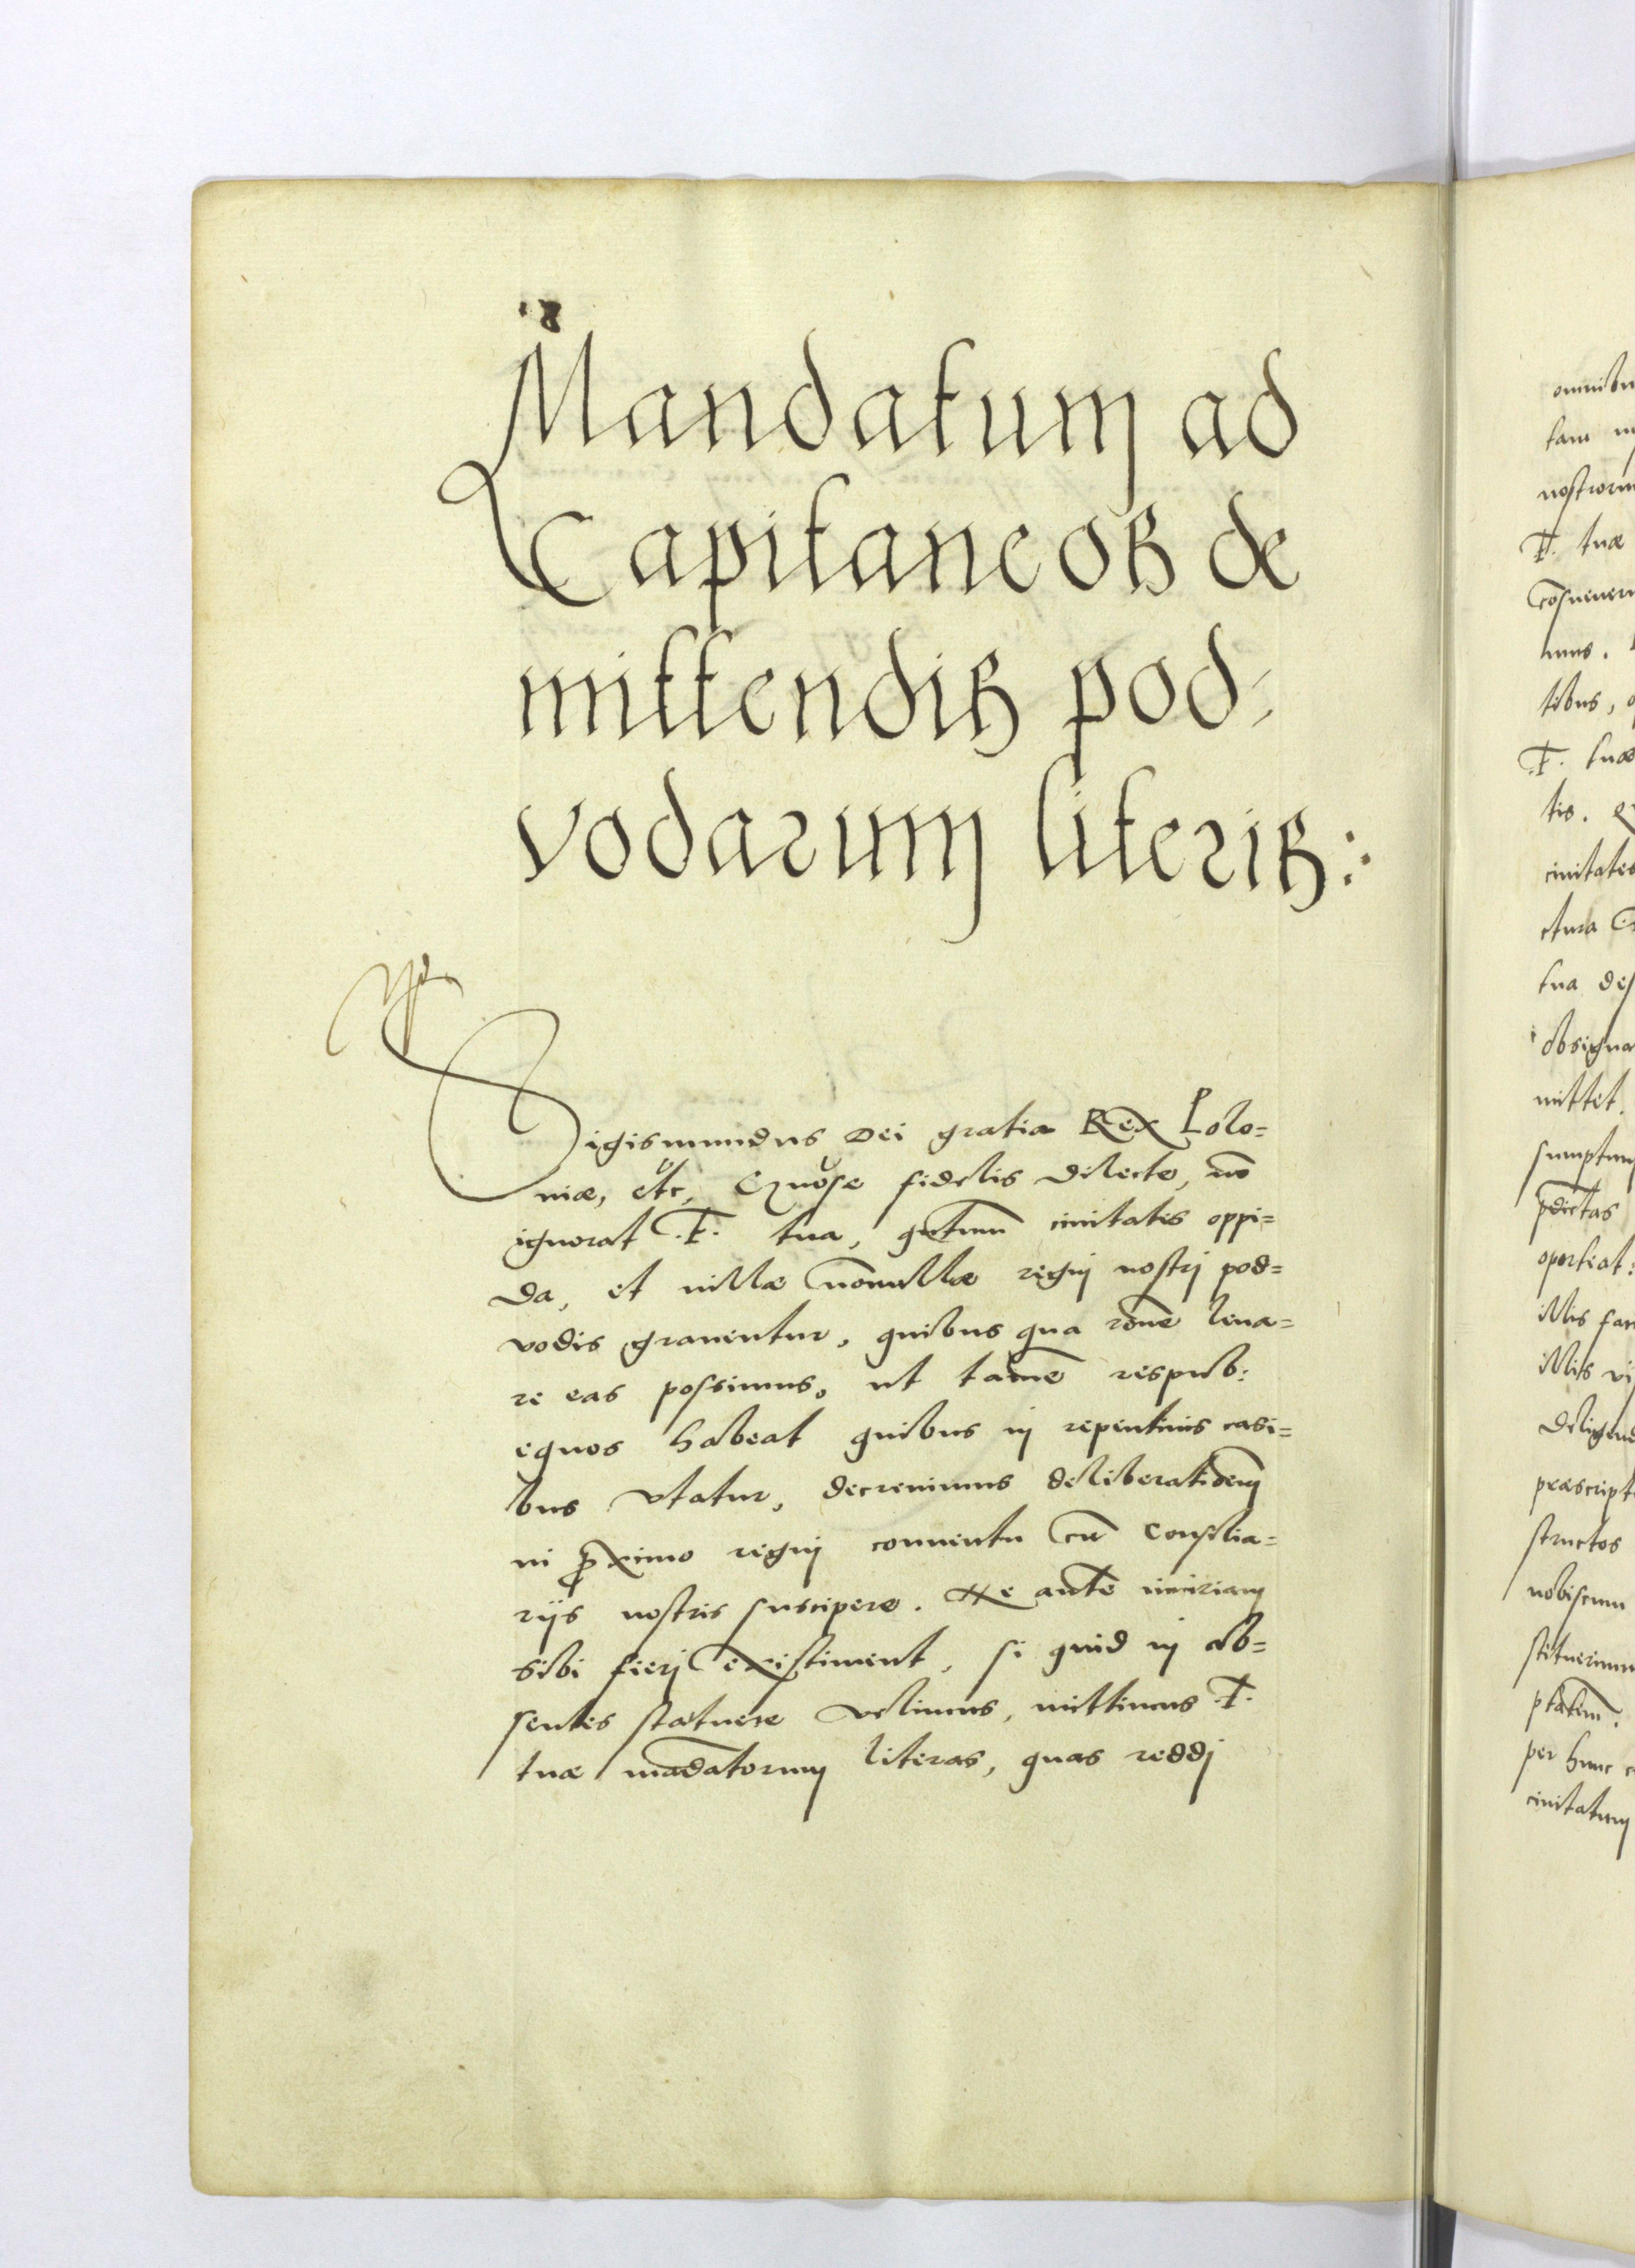 Mandatum ad
Capitaneos de
mittendis pod-
vodarum literis:
Sigismundus Dei gratia Rex Polo=
niæ, etc, Gnōse fidelis dilecte, nō
ignorat F. tua, q̄ntum ciuitates oppi=
da, et villæ nōnullæ regnj nostrj pod=
vodis grauentur, quibus qua rōne leua=
re eas possimus, ut tamē respub:
equos habeat quibus in repentinis casi=
bus vtatur, decreuimus deliberatiōem
in ꝓximo regnj conuentu cū Consilia=
rijs nostris suscipere. Ne autē iniuriam
sibi fierj existiment, si quid in ab=
sentes statuere velimus, mittimus F.
tuæ mādatorum literas, quas reddj
omnibu
tam
nostrorum
F. tuæ
cōsueuer
mus.
tibus,
F. tuæ
tis.
ciuitates
ctura
tua des
obsigna
mittet.
sumptum
p̄dictas
oporteat:
illis fac
illis vi
diligend
præscript
structos
nobiscum
stituerimus
ptatem.
per hunc
ciuitatum